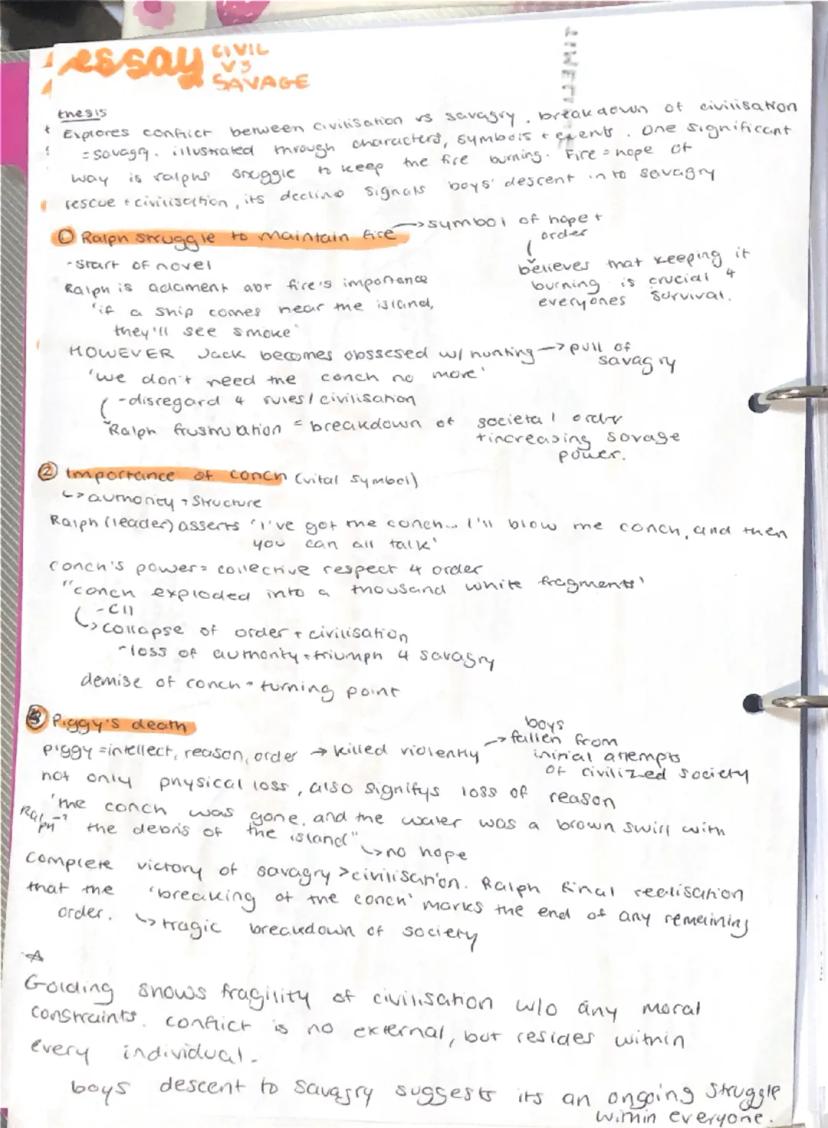 essay CIVIL
VS
SAVAGE
TIMELINE
thesis
Explores conflict between civilisation vs savagry. breakdown of civilisation
= savagry. illustrated through characters, symbols + events. One significant
way is ralphs snuggle to keep the fire burning. Fire = hope of
rescue + civilisation, its decline signals boys' descent into savagry
① Ralph struggle to maintain fire → symbol of hope +
order
-start of novel
believes that keeping it
burning is crucial 4
everyones survival.
Ralph is adament abt fire's importance
'if a ship comes near the island,
they'll see smoke'
HOWEVER Jack becomes obssesed w/ hunting → pull of
savagry
'we don't need the conch no more'
-disregard 4 rules/civilisation
Ralph frustration = breakdown of societal order
+increasing savage
power.
② Importance of conch (vital symbol)
↳ authority + structure
Ralph (leader) asserts 'I've got the conch... I'll blow the conch, and then
you can all talk'
conch's power = collective respect 4 order
"conch exploded into a thousand white fragments'
-C11
↳ collapse of order + civilisation
-loss of authority + triumph 4 savagry
demise of conch = turning point
③ Piggy's death
piggy = intellect, reason, order → killed violently → boys
fallen from
initial attempts
of civilized society
not only physical loss, also signifys loss of reason
'the conch was gone, and the water was a brown swirl with
Ralph → the debris of the island"
↳ no hope
complete victory of savagry > civilisation. Ralph final realisation
that the 'breaking of the conch' marks the end of any remaining
order. ↳ tragic breakdown of society
Golding shows fragility of civilisation w/o any moral
constraints. conflict is no external, but resides within
every individual.
boys descent to savagry suggests its an ongoing struggle
within everyone.